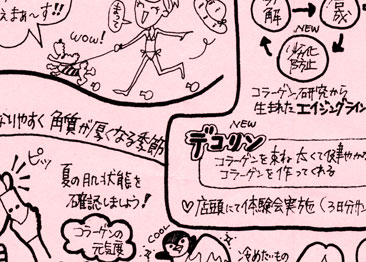 えまぁ〜す!!
wow!
まって
分解
NEW
劣化防止
コラーゲン研究から
生まれたエイジングライン
なりやすく角質が厚くなる季節
NEW
デコリン
コラーゲンを束ね太くて健やかな
コラーゲンを作ってくれる
♡店頭にて体験会実施(3日分サン
ピッ
夏の肌状態を
確認しましょう!
コラーゲンの
元気度
COOL
冷めたいもの